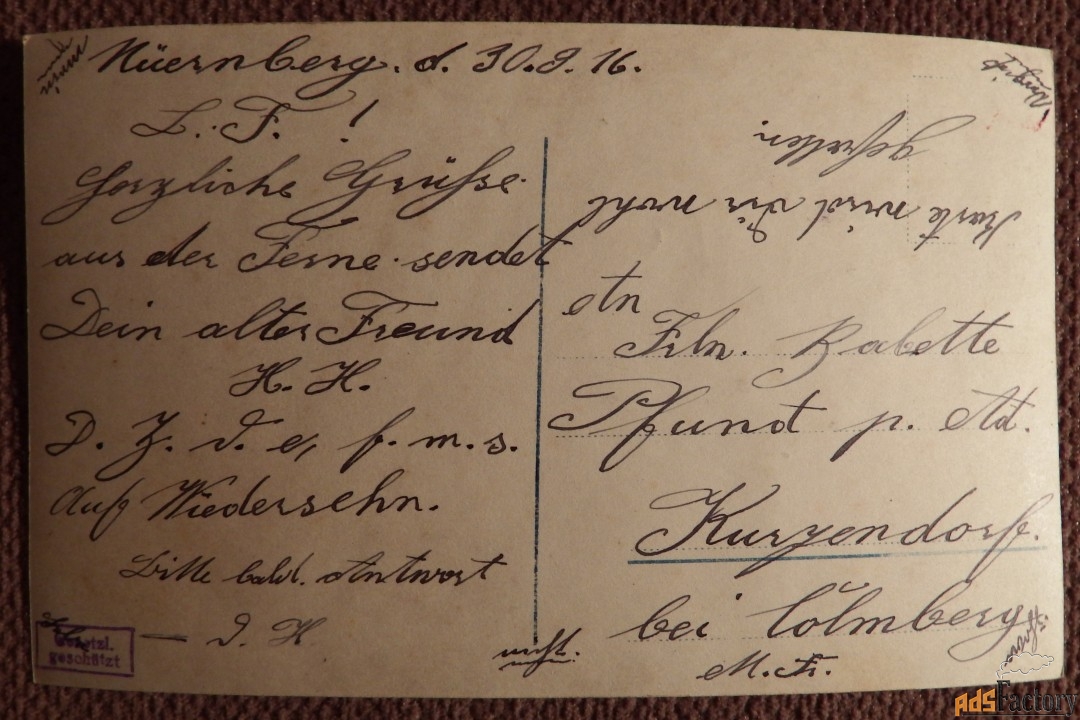 Nüernberg. d. 30.9.16.
L. F. !
Herzliche Grüsse
aus der Ferne sendet
Dein alter Freund
H. H.
D. Z. d. e, f. m. s.
Auf Wiedersehn.
Bitte bald. Antwort
D. H
Gesetzl.
geschützt
Karte wird Dir wohl
gefallen
An
Frln. Babette
Pfund p. Ad.
Kurzendorf.
bei Colmberg
M. Fr.
nicht.
AdsFactory